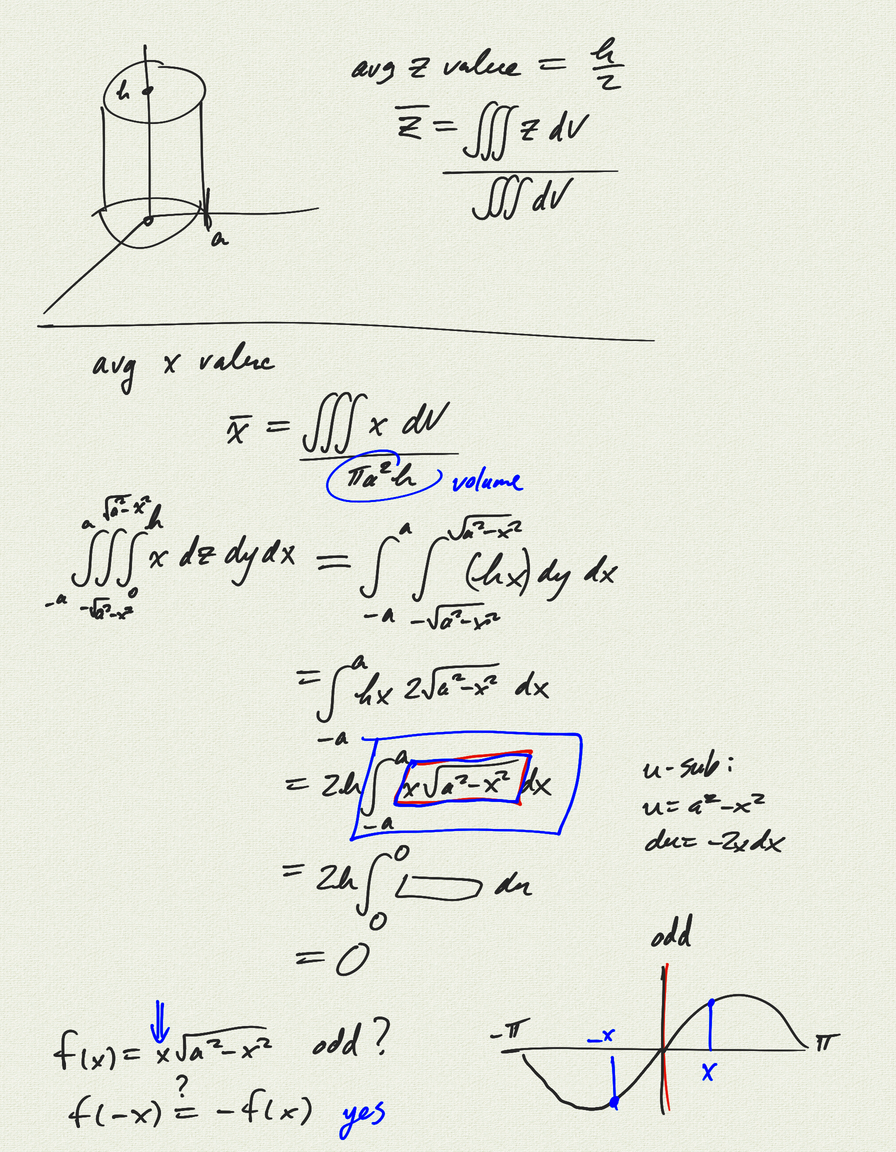 h
a
avg z value = h/2
z̄ = ∭ z dV / ∭ dV
avg x value
x̄ = ∭ x dV / πa²h volume
∫_{-a}^{a} ∫_{-√(a²-x²)}^{√(a²-x²)} ∫_{0}^{h} x dz dy dx = ∫_{-a}^{a} ∫_{-√(a²-x²)}^{√(a²-x²)} (hx) dy dx
= ∫_{-a}^{a} hx 2√(a²-x²) dx
= 2h ∫_{-a}^{a} x√(a²-x²) dx
u-sub:
u = a²-x²
du = -2x dx
= 2h ∫_{0}^{0} du
= 0
f(x) = x√(a²-x²) odd?
f(-x) ?= -f(x) yes
odd
-π -x x π